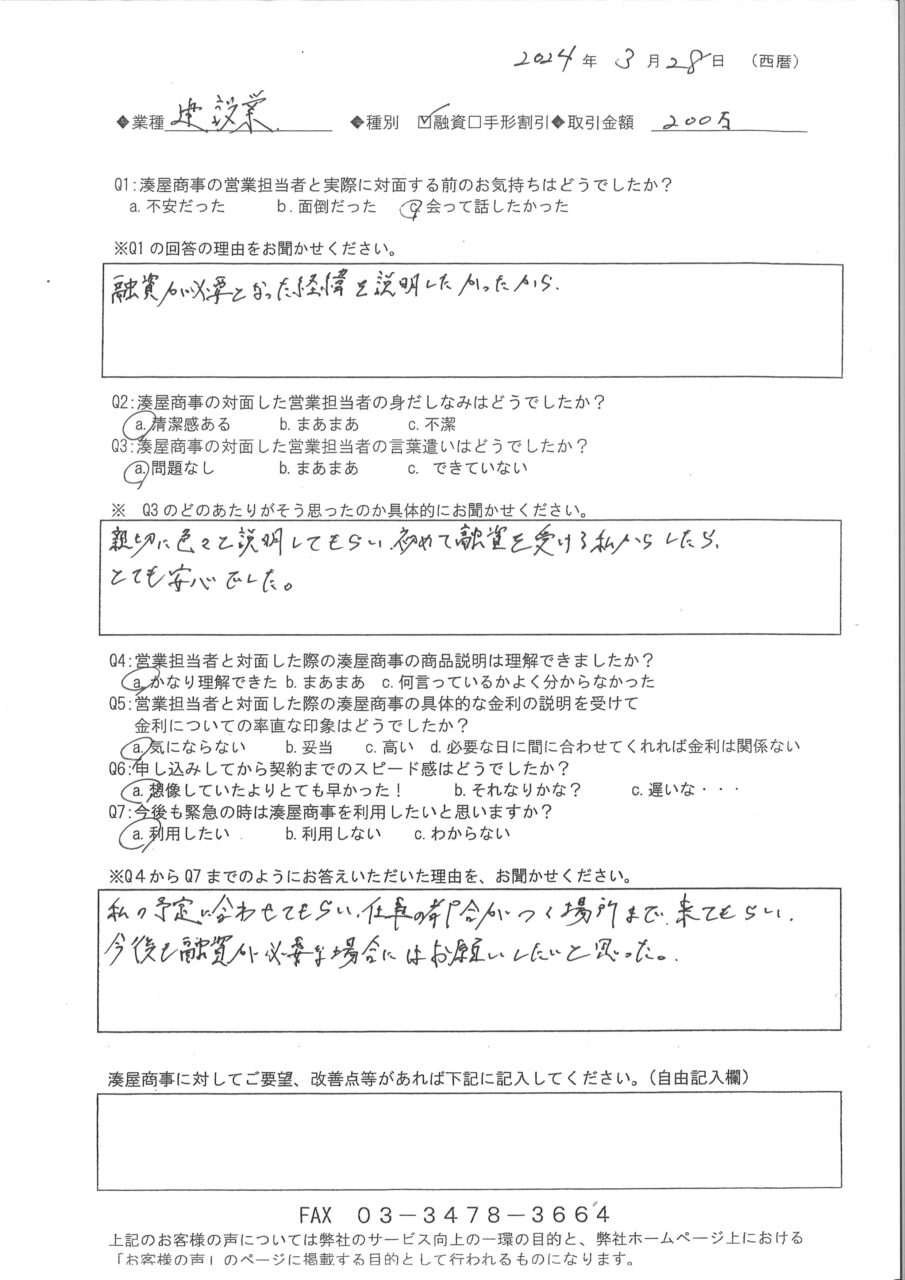 2024年 3月28日 (西暦)
◆業種 建設業 ◆種別 ☑融資□手形割引◆取引金額 200万
Q1:湊屋商事の営業担当者と実際に対面する前のお気持ちはどうでしたか?
a.不安だった b.面倒だった c.会って話したかった
※Q1の回答の理由をお聞かせください。
融資が必要となった経緯を説明したかったから.
Q2:湊屋商事の対面した営業担当者の身だしなみはどうでしたか?
a.清潔感ある b.まあまあ c.不潔
Q3:湊屋商事の対面した営業担当者の言葉遣いはどうでしたか?
a.問題なし b.まあまあ c. できていない
※ Q3のどのあたりがそう思ったのか具体的にお聞かせください。
親切に色々と説明してもらい、初めて融資を受ける私からしたら、
とても安心でした。
Q4:営業担当者と対面した際の湊屋商事の商品説明は理解できましたか?
a.かなり理解できた b.まあまあ c.何言っているかよく分からなかった
Q5:営業担当者と対面した際の湊屋商事の具体的な金利の説明を受けて
金利についての率直な印象はどうでしたか?
a.気にならない b.妥当 c.高い d.必要な日に間に合わせてくれれば金利は関係ない
Q6:申し込みしてから契約までのスピード感はどうでしたか?
a.想像していたよりとても早かった! b.それなりかな? c.遅いな・・・
Q7:今後も緊急の時は湊屋商事を利用したいと思いますか?
a.利用したい b.利用しない c.わからない
※Q4からQ7までのようにお答えいただいた理由を、お聞かせください。
私の予定に合わせてもらい、仕事の都合がつく場所まで、来てもらい、
今後も融資が必要な場合にはお願いしたいと思った。
湊屋商事に対してご要望、改善点等があれば下記に記入してください。(自由記入欄)
FAX 03-3478-3664
上記のお客様の声については弊社のサービス向上の一環の目的と、弊社ホームページ上における
「お客様の声」のページに掲載する目的として行われるものになります。